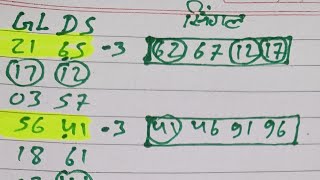 GL DS सिंगल
21 65 -3 62 67 12 17
17 12
03 57
56 41 -3 41 46 91 96
18 61